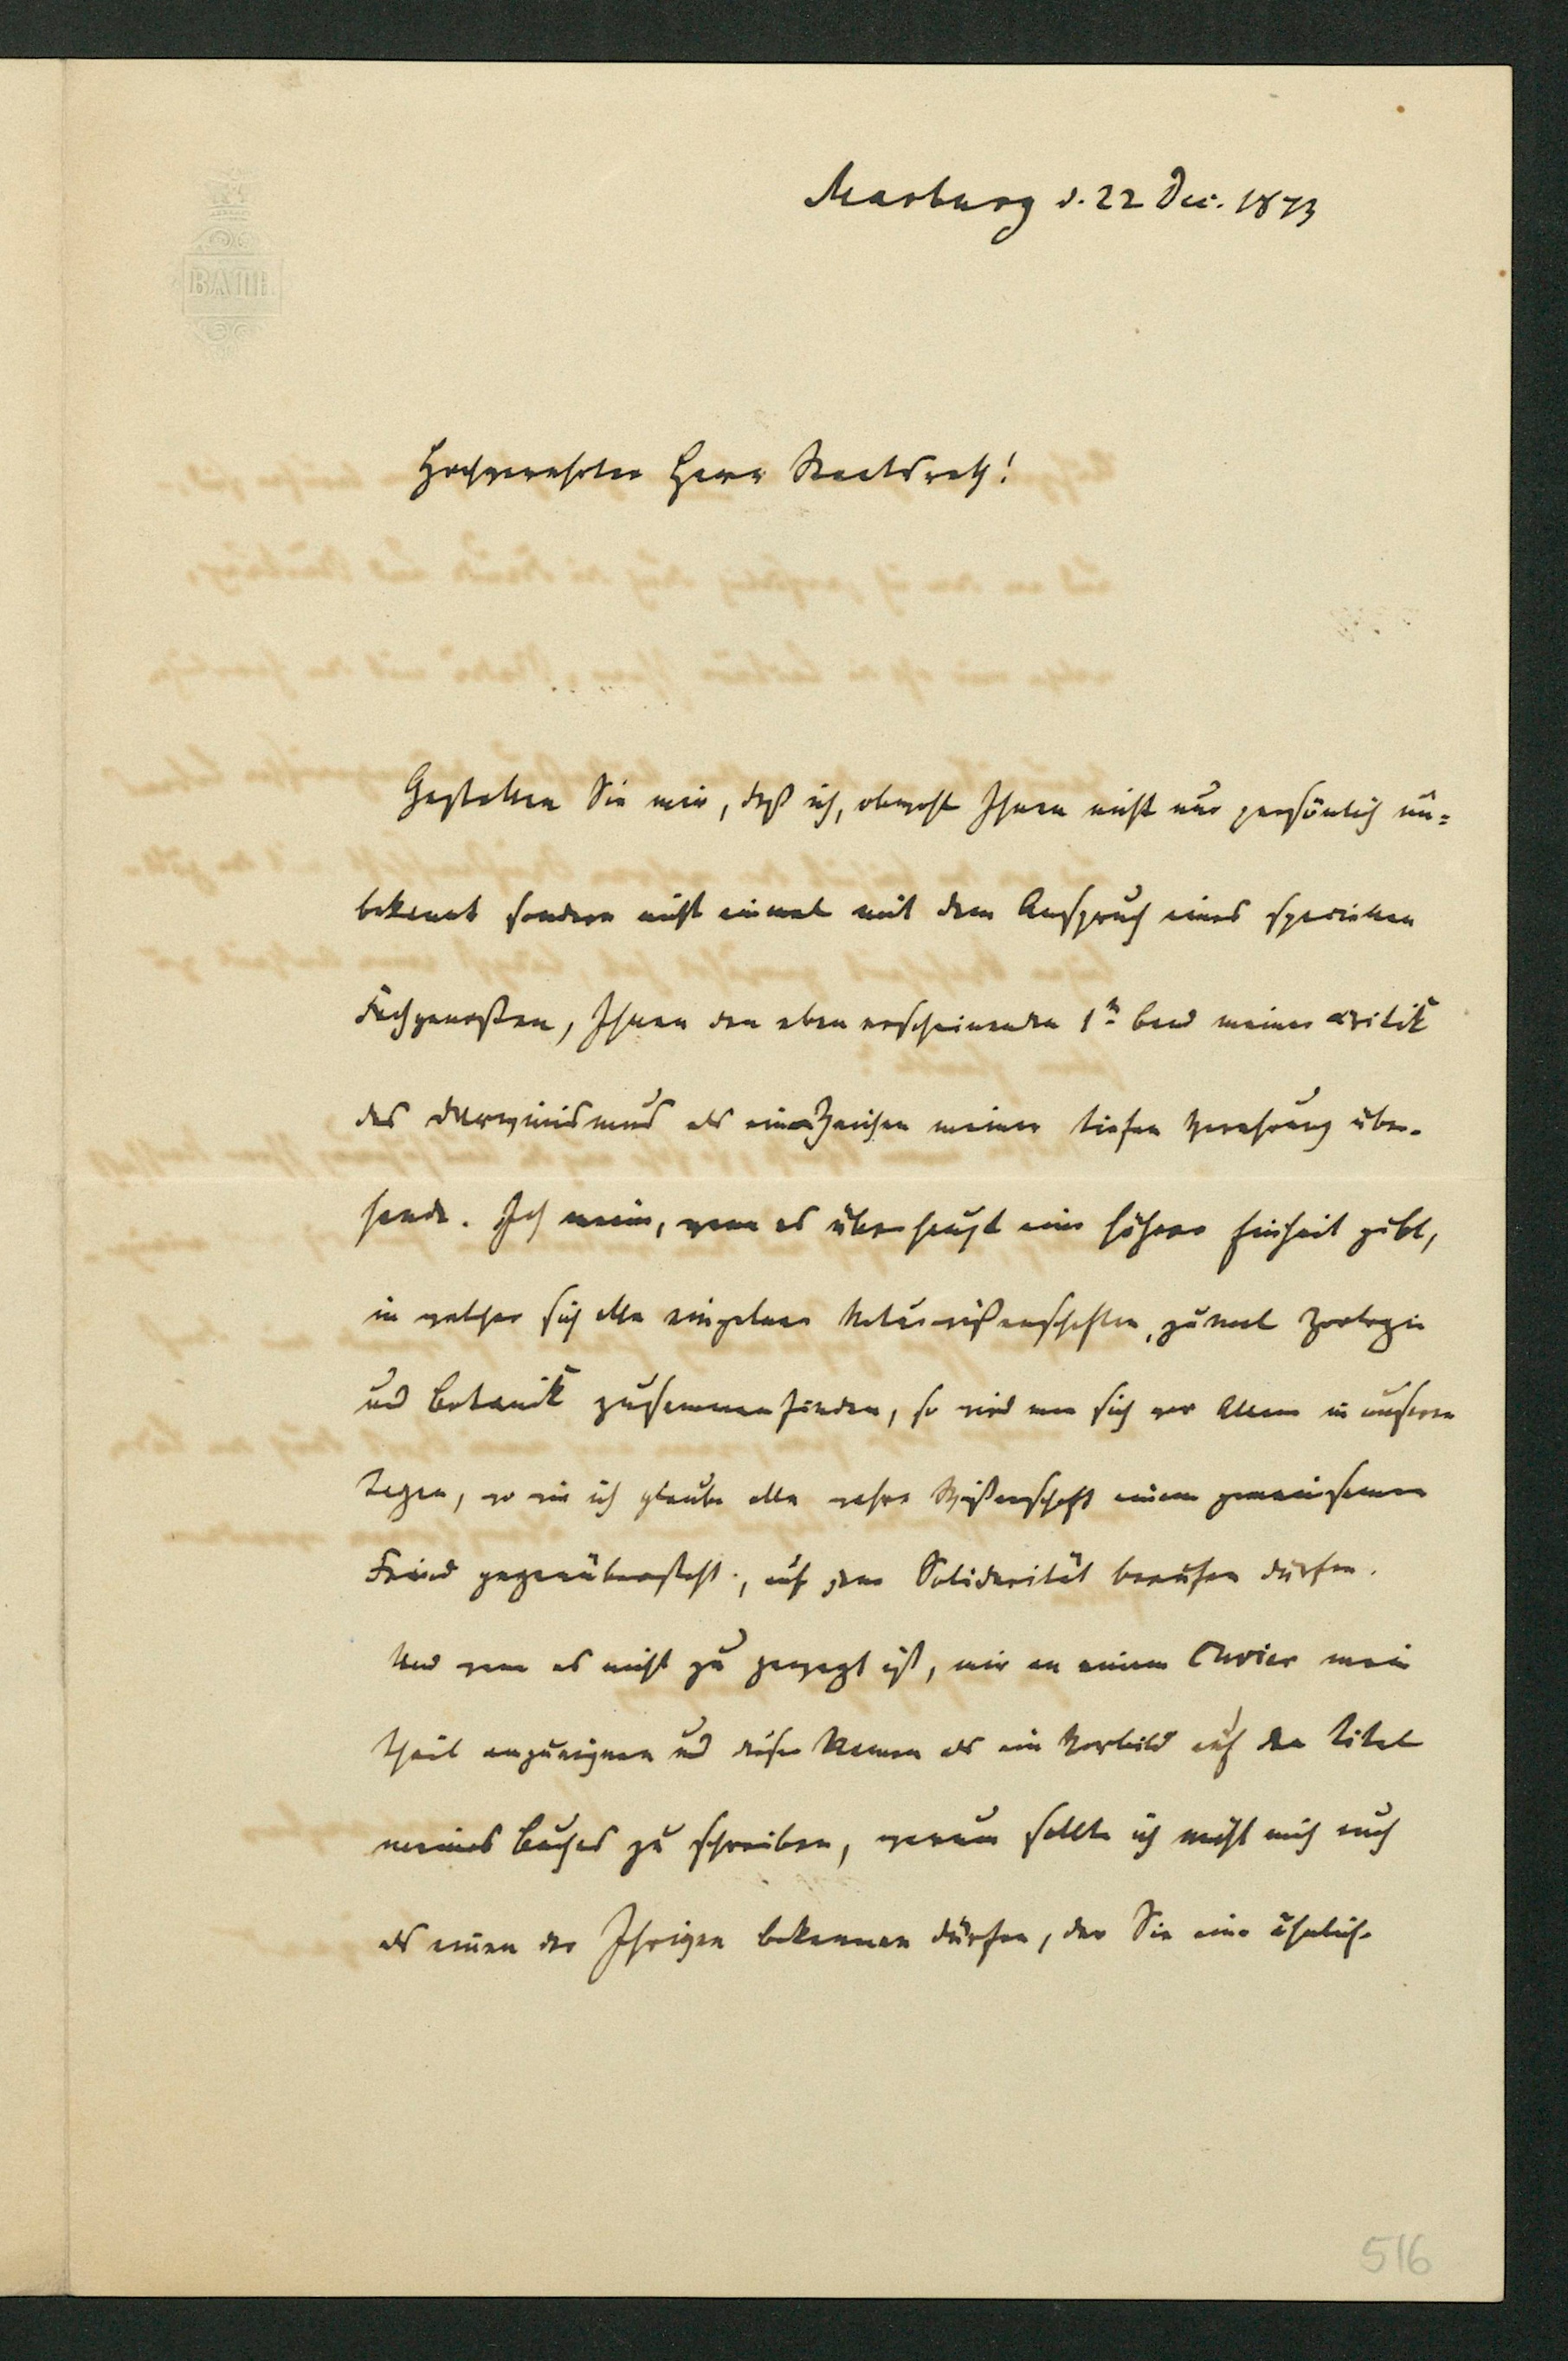 BATH
Marburg d. 22 Dec. 1873
Hochverehrter Herr Staatsrath!
Gestatten Sie mir, daß ich, obwohl Ihnen nicht nur persönlich un=
bekannt sondern nicht einmal mit dem Anspruch eines speciellen
Fachgenoßen, Ihnen den eben erscheinenden 1n Band meiner Critik
des Darwinismus als ein Zeichen meiner tiefen Verehrung über-
sende. Ich meine, wenn es überhaupt eine höhere Einheit gibt,
in welcher sich alle einzelnen Naturwißenschaften, zumal Zoologie
und Botanik zusammenfinden, so wird man sich vor Allem in unseren
Tagen, wo wie ich glaube alle wahre Wißenschaft einem gemeinsamen
Feind gegenübersteht, auf jene Solidarität berufen dürfen.
Und wenn es nicht zu gewagt ist, mir an einem Cuvier mein
Theil anzueignen und diesen Namen als ein Vorbild auf den Titel
meines Buches zu schreiben, warum sollte ich nicht mich auch
als einen der Ihrigen bekennen dürfen, der Sie eine ähnliche
516